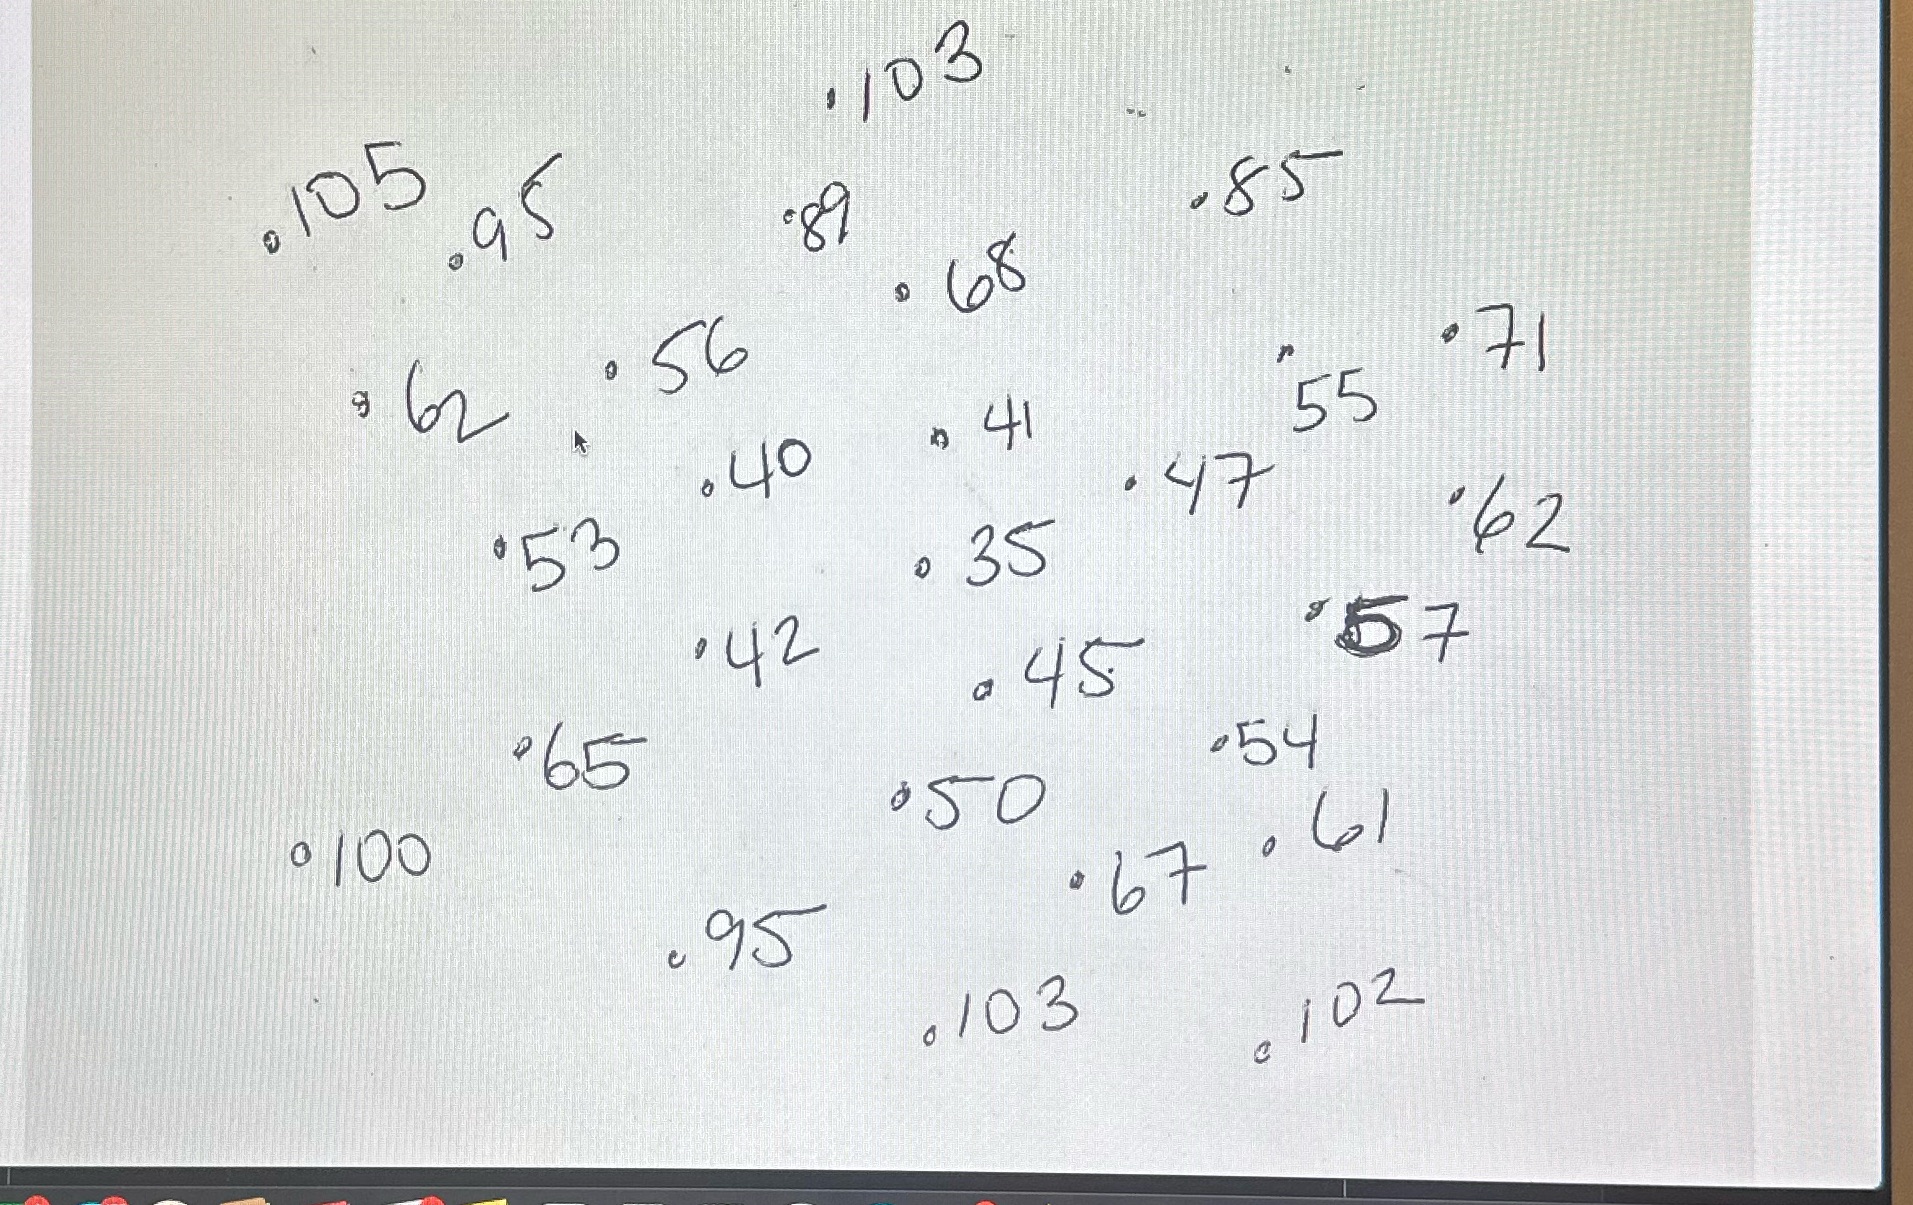 .103
.105
.95
.89
.85
.68
.71
.56
.55
.62
.41
.40
.47
.62
.53
.35
.57
.42
.45
.65
.54
.50
.61
.100
.67
.95
.103
.102